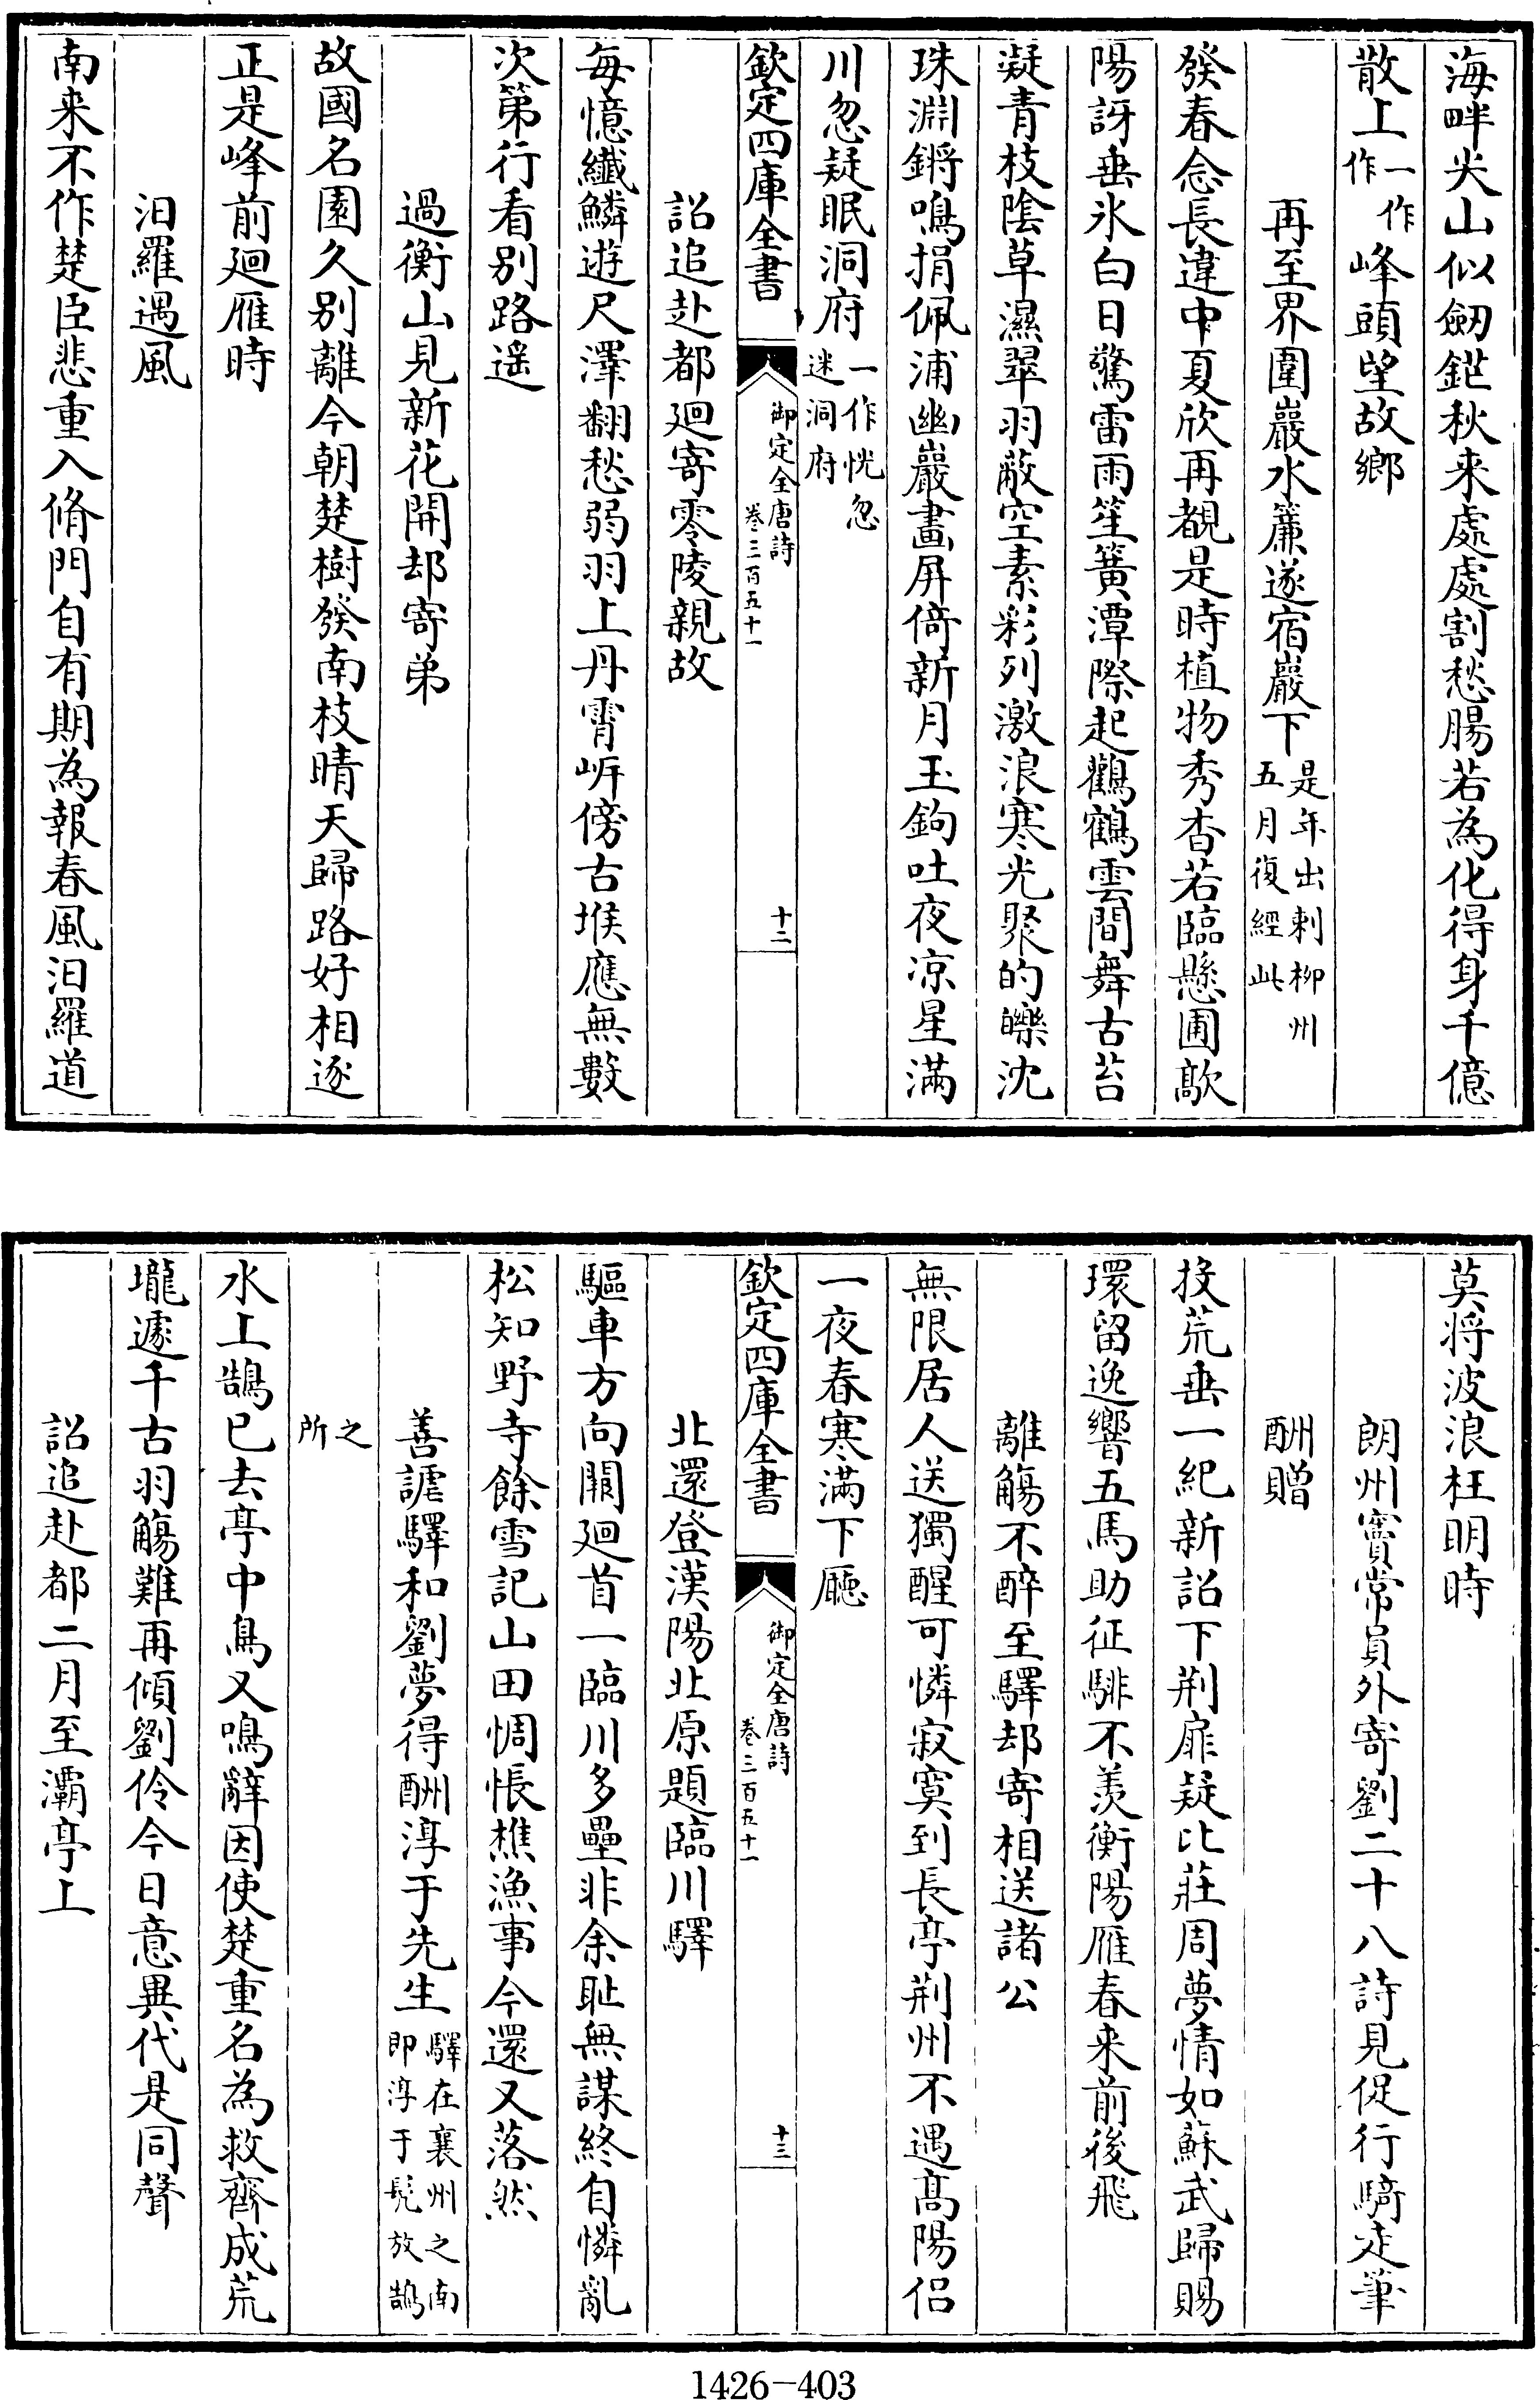 海畔尖山似劒鋩秋来處處割愁腸若為化得身千億
散上一作作峰頭望故鄉
再至界圍巖水簾遂宿巖下是年出刺柳州五月復經此
發春念長違中夏欣再覩是時植物秀杳若臨懸圃歊
陽訝垂氷白日驚雷雨笙簧潭際起鸛鶴雲間舞古苔
凝青枝陰草濕翠羽蔽空素彩列激浪寒光聚的皪沈
珠淵鏘鳴捐佩浦幽巖畫屏倚新月玉鉤吐夜凉星滿
川忽疑眠洞府一作恍忽迷洞府
欽定四庫全書 御定全唐詩 卷三百五十一 十二
詔追赴都廻寄零陵親故
每憶纎鱗遊尺澤翻愁弱羽上丹霄岸傍古堠應無數
次第行看别路遥
過衡山見新花開却寄弟
故國名園久别離今朝楚樹發南枝晴天歸路好相逐
正是峰前廻雁時
汨羅遇風
南来不作楚臣悲重入脩門自有期為報春風汨羅道
莫将波浪枉明時
朗州竇常員外寄劉二十八詩見促行騎走筆
酬贈
投荒垂一紀新詔下荆扉疑比莊周夢情如蘇武歸賜
環留逸響五馬助征騑不羡衡陽雁春来前後飛
離觴不醉至驛却寄相送諸公
無限居人送獨醒可憐寂寞到長亭荆州不遇髙陽侣
一夜春寒滿下廳
欽定四庫全書 御定全唐詩 卷三百五十一 十三
北還登漢陽北原題臨川驛
驅車方向闕廻首一臨川多壘非余耻無謀終自憐亂
松知野寺餘雪記山田惆悵樵漁事今還又落然
善謔驛和劉夢得酬淳于先生驛在襄州之南即淳于髠放鵠
之所
水上鵠已去亭中鳥又鳴辭因使楚重名為救齊成荒
壠遽千古羽觴難再傾劉伶今日意異代是同聲
詔追赴都二月至灞亭上
1426-403